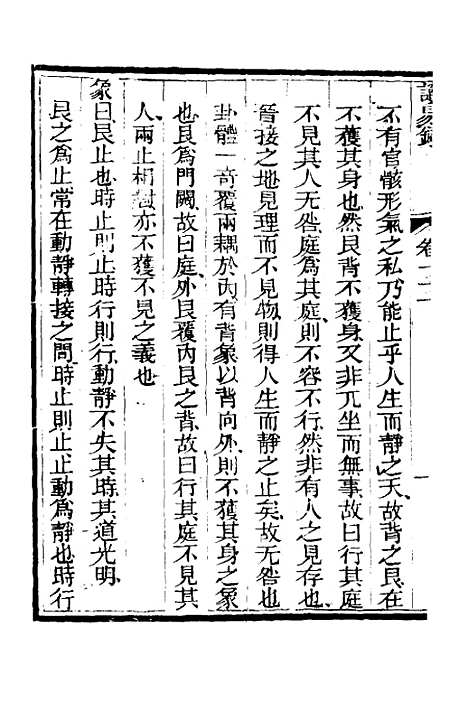 讀易錄　卷十二
不有官骸形氣之私乃能止乎人生而靜之天故背之艮在
不獲其身也然艮背不獲身又非兀坐而無事故曰行其庭
不見其人无咎庭爲其庭則不容不行然非有人之見存也
晉接之地見理而不見物則得人生而靜之止矣故无咎也
卦體一奇覆兩耦於內有背象以背向外則不獲其身之象
也艮爲門闕故曰庭外艮覆內艮之背故曰行其庭不見其
人兩止相對亦不獲不見之義也
彖曰艮止也時止則止時行則行動靜不失其時其道光明
艮之爲止常在動靜轉接之間時止則止止動爲靜也時行